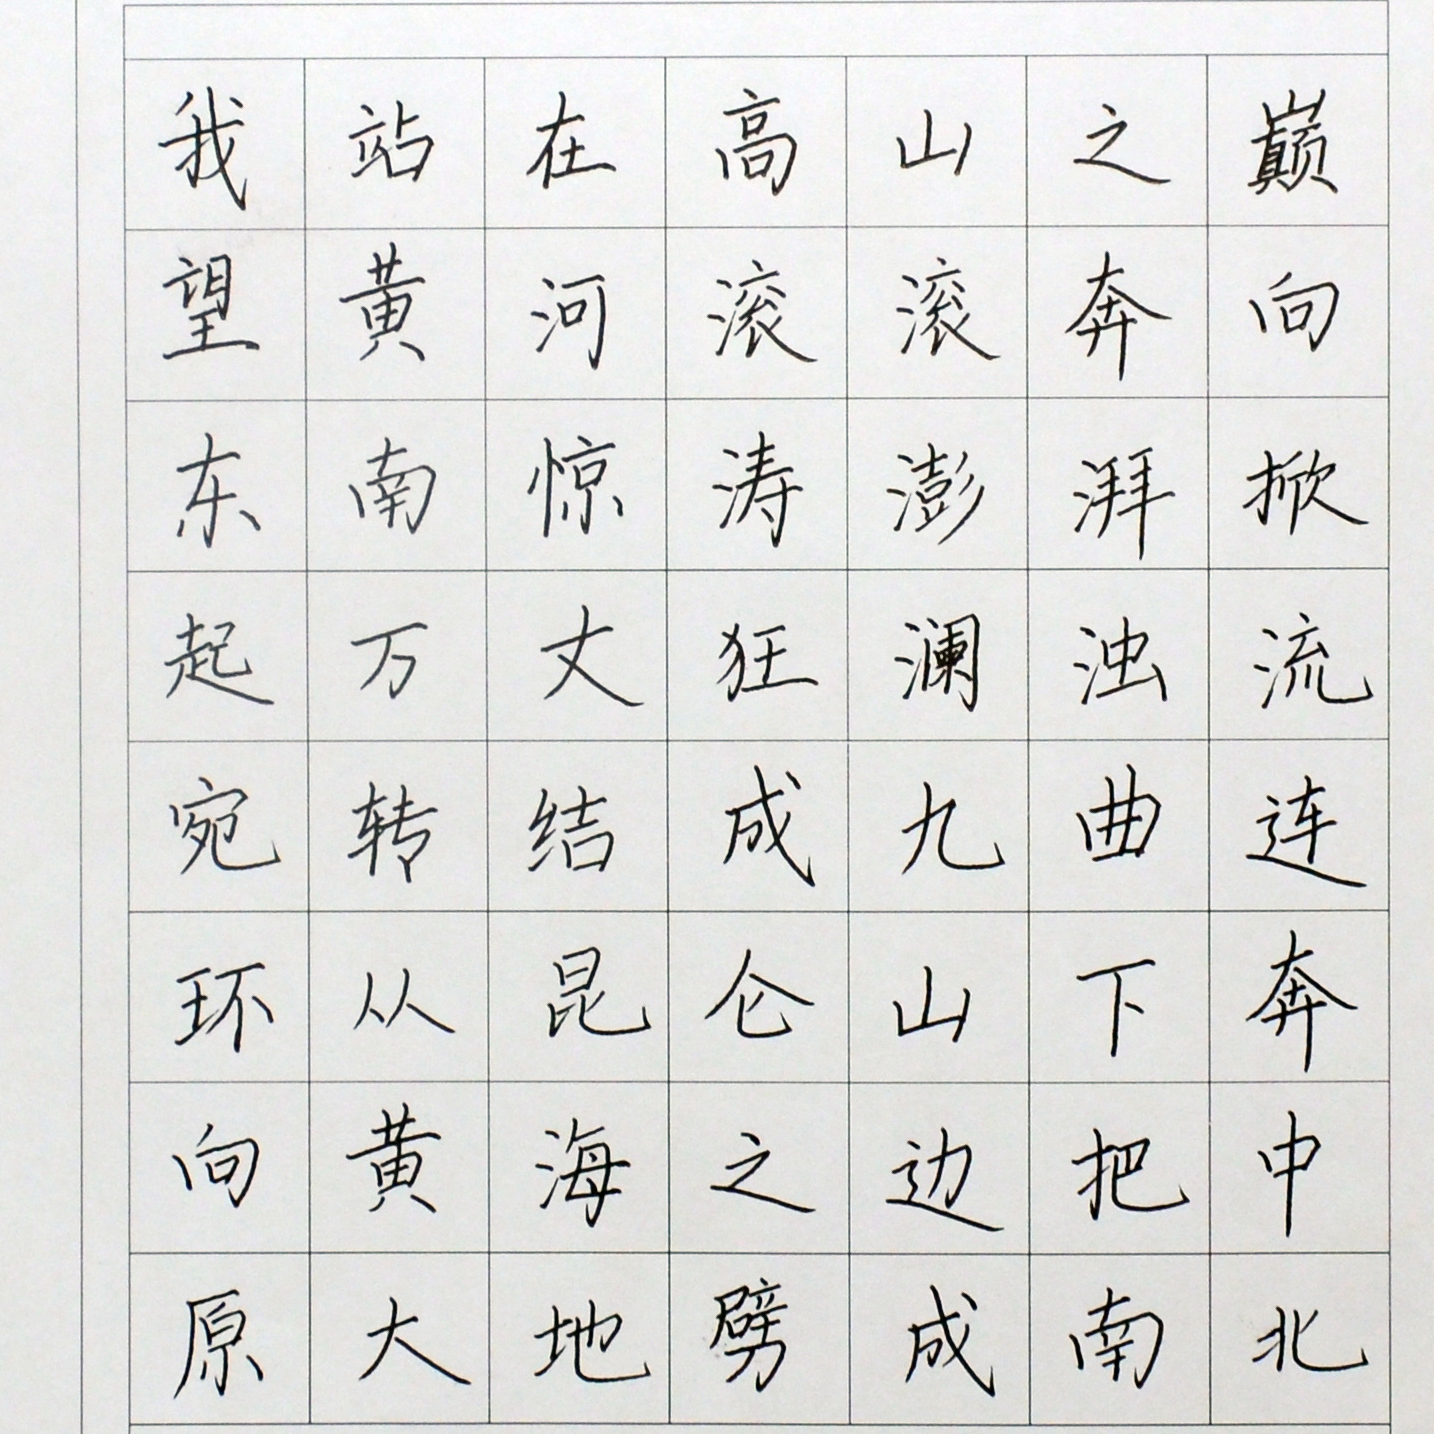 我站在高山之巅
望黄河滚滚奔向
东南惊涛澎湃掀
起万丈狂澜浊流
宛转结成九曲连
环从昆仑山下奔
向黄海之边把中
原大地劈成南北